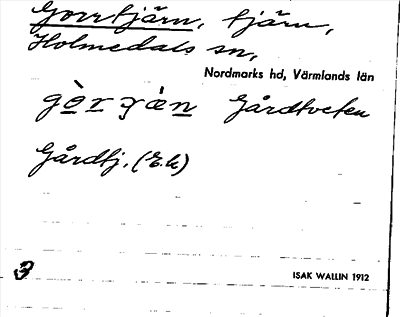 Gorrtjärn, tjärn,
Holmedals sn,
Nordmarks hd, Värmlands län
Gårdtveten
Gårdtj. (E.k)
3
ISAK WALLIN 1912